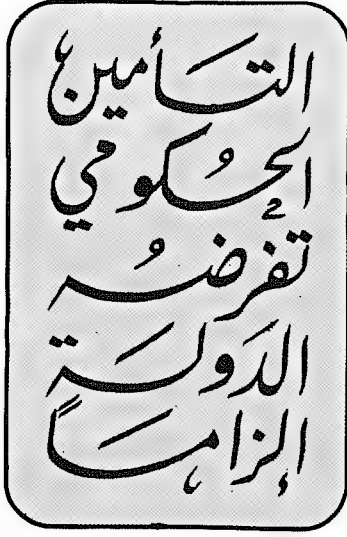 التأمين
الحكومي
تفرضُه
الدَولَة
إلزامًا